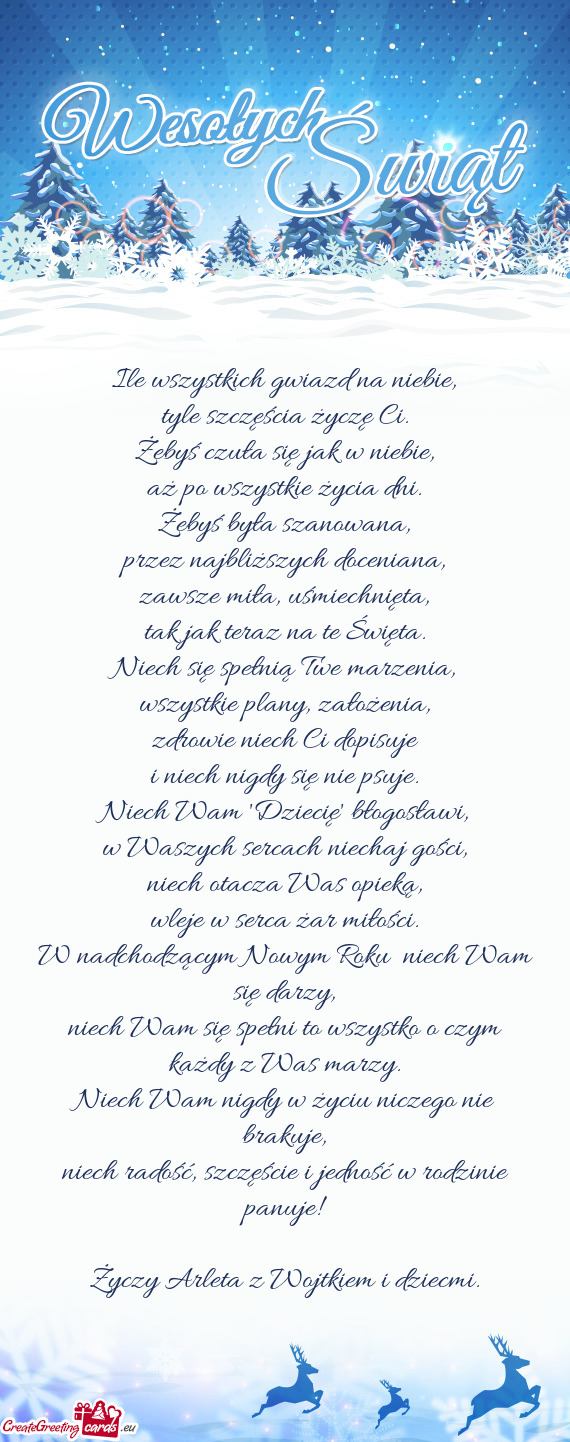 Wesołych
Świąt
Ile wszystkich gwiazd na niebie,
tyle szczęścia życzę Ci.
Żebyś czuła się jak w niebie,
aż po wszystkie życia dni.
Żebyś była szanowana,
przez najbliższych doceniana,
zawsze miła, uśmiechnięta,
tak jak teraz na te Święta.
Niech się spełnią Twe marzenia,
wszystkie plany, założenia,
zdrowie niech Ci dopisuje
i niech nigdy się nie psuje.
Niech Wam 'Dziecię' błogosławi,
w Waszych sercach niechaj gości,
niech otacza Was opieką,
wleje w serca żar miłości.
W nadchodzącym Nowym Roku niech Wam
się darzy,
niech Wam się spełni to wszystko o czym
każdy z Was marzy.
Niech Wam nigdy w życiu niczego nie
brakuje,
niech radość, szczęście i jedność w rodzinie
panuje!
Życzy Arleta z Wojtkiem i dziecmi.
CreateGreeting cards .eu